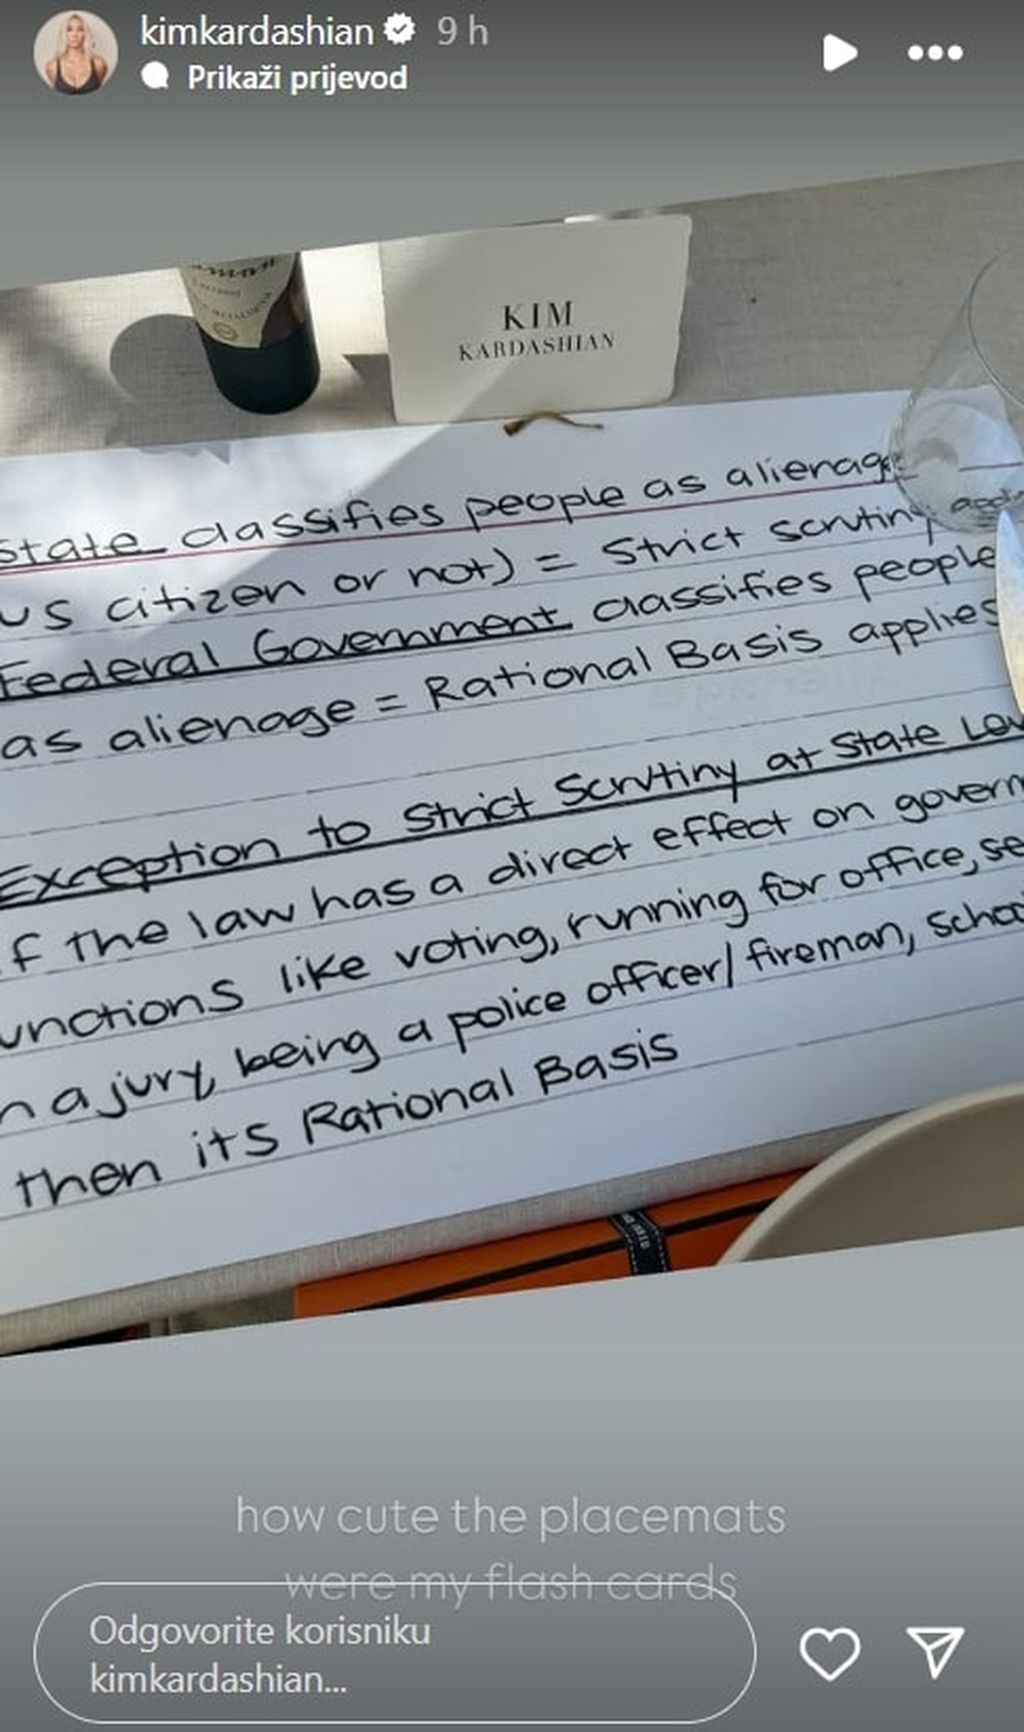 kimkardashian 9 h
Prikaži prijevod
KIM
KARDASHIAN
State classifies people as alienage
US citizen or not) = Strict scrutiny
Federal Government classifies people
as alienage = Rational Basis applies
Exception to Strict Scrutiny at State
If the law has a direct effect on
like voting, running for office,
a jury, being a police officer/fireman,
then its Rational Basis
how cute the placemats
were my flash cards
Odgovorite korisniku
kimkardashian...